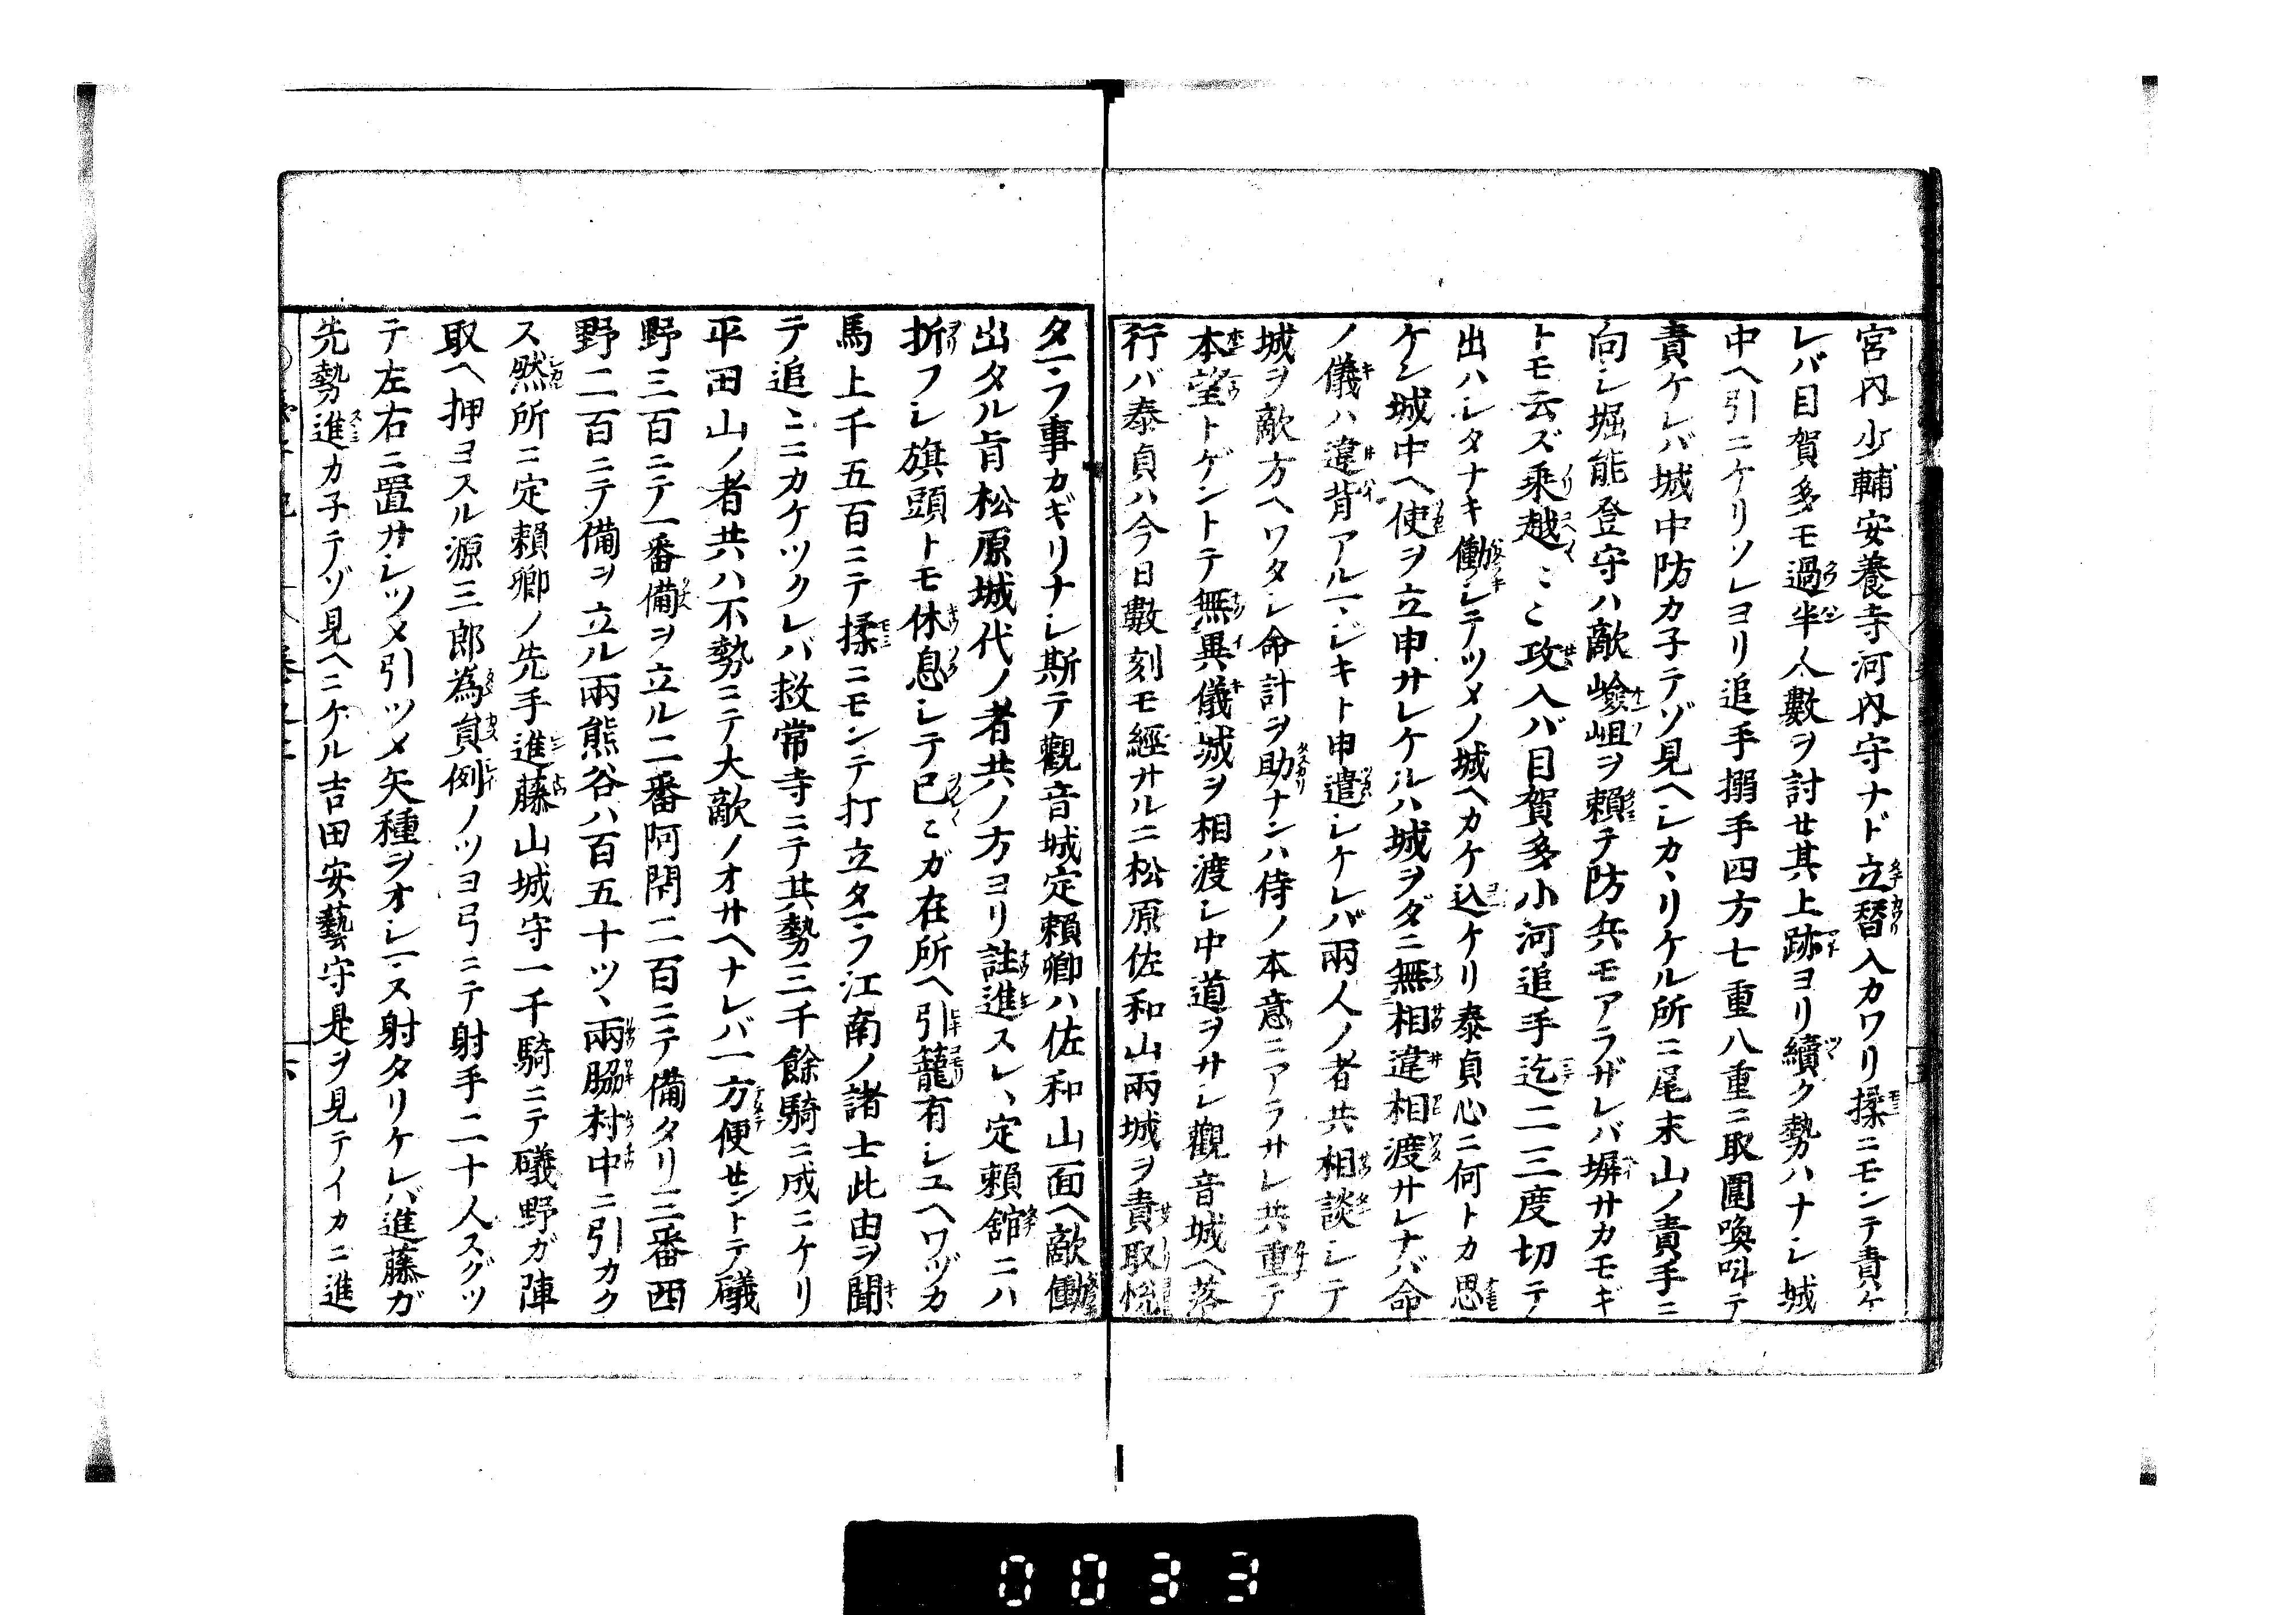 宮内少輔安養寺河内守ナド立替入カワリ揉ニモンテ責ケ
レバ目賀多モ過半人數ヲ討セ其上跡ヨリ續ク勢ハナシ城
中ヘ引ニケリソレヨリ追手搦手四方七重八重ニ取圍喚叫テ
責ケレバ城中防カ子テゾ見ヘシカヽリケル所ニ尾末山ノ責手ニ
向シ堀能登守ハ敵嶮岨ヲ頼テ防兵モアラザレバ塀サカモギ
トモ云ズ乗越〻〻攻入バ目賀多小河追手迄二三度切テ
出ハシタナキ働シテツメノ城ヘカケ込ケリ泰貞心ニ何トカ思
ケン城中ヘ使ヲ立申サレケルハ城ヲダニ無相違相渡サレナバ命
ノ儀ハ違背アルヿジキト申遣シケレバ兩人ノ者共相談シテ
城ヲ敵方ヘワタシ命計ヲ助ナンハ侍ノ本意ニアラサレ共重テ
本望トゲントテ無異儀城ヲ相渡シ中道ヲサシ觀音城ヘ落
行バ泰貞ハ今日數刻モ經サルニ松原佐和山兩城ヲ責取悦
タマフ事カギリナシ斯テ觀音城定賴卿ハ佐和山面ヘ敵働
出タル旨松原城代ノ者共ノ方ヨリ註進スレヽ定賴舘ニハ
折フシ旗頭トモ休息シテ已〻ガ在所ヘ引籠有シユヘワヅカ
馬上千五百ニテ揉ニモンテ打立タマフ江南ノ諸士此由ヲ聞
テ追〻ニカケツクレバ救常寺ニテ其勢三千餘騎ニ成ニケリ
平田山ノ者共ハ不勢ニテ大敵ノオサヘナレバ一方便セントテ礒
野三百ニテ一番備ヲ立ル二番阿閉二百ニテ備タリ三番西
野二百ニテ備ヲ立ル兩熊谷ハ百五十ツヽ兩脇村中ニ引カク
ス然所ニ定賴卿ノ先手進藤山城守一千騎ニテ礒野ガ陣
取ヘ押ヨスル源三郎為員例ノツヨ弓ニテ射手二十人スグツ
テ左右ニ置サシツメ引ツメ矢種ヲオシマス射タリケレバ進藤ガ
先勢進カ子テゾ見ヘニケル吉田安藝守是ヲ見テイカニ進
0033